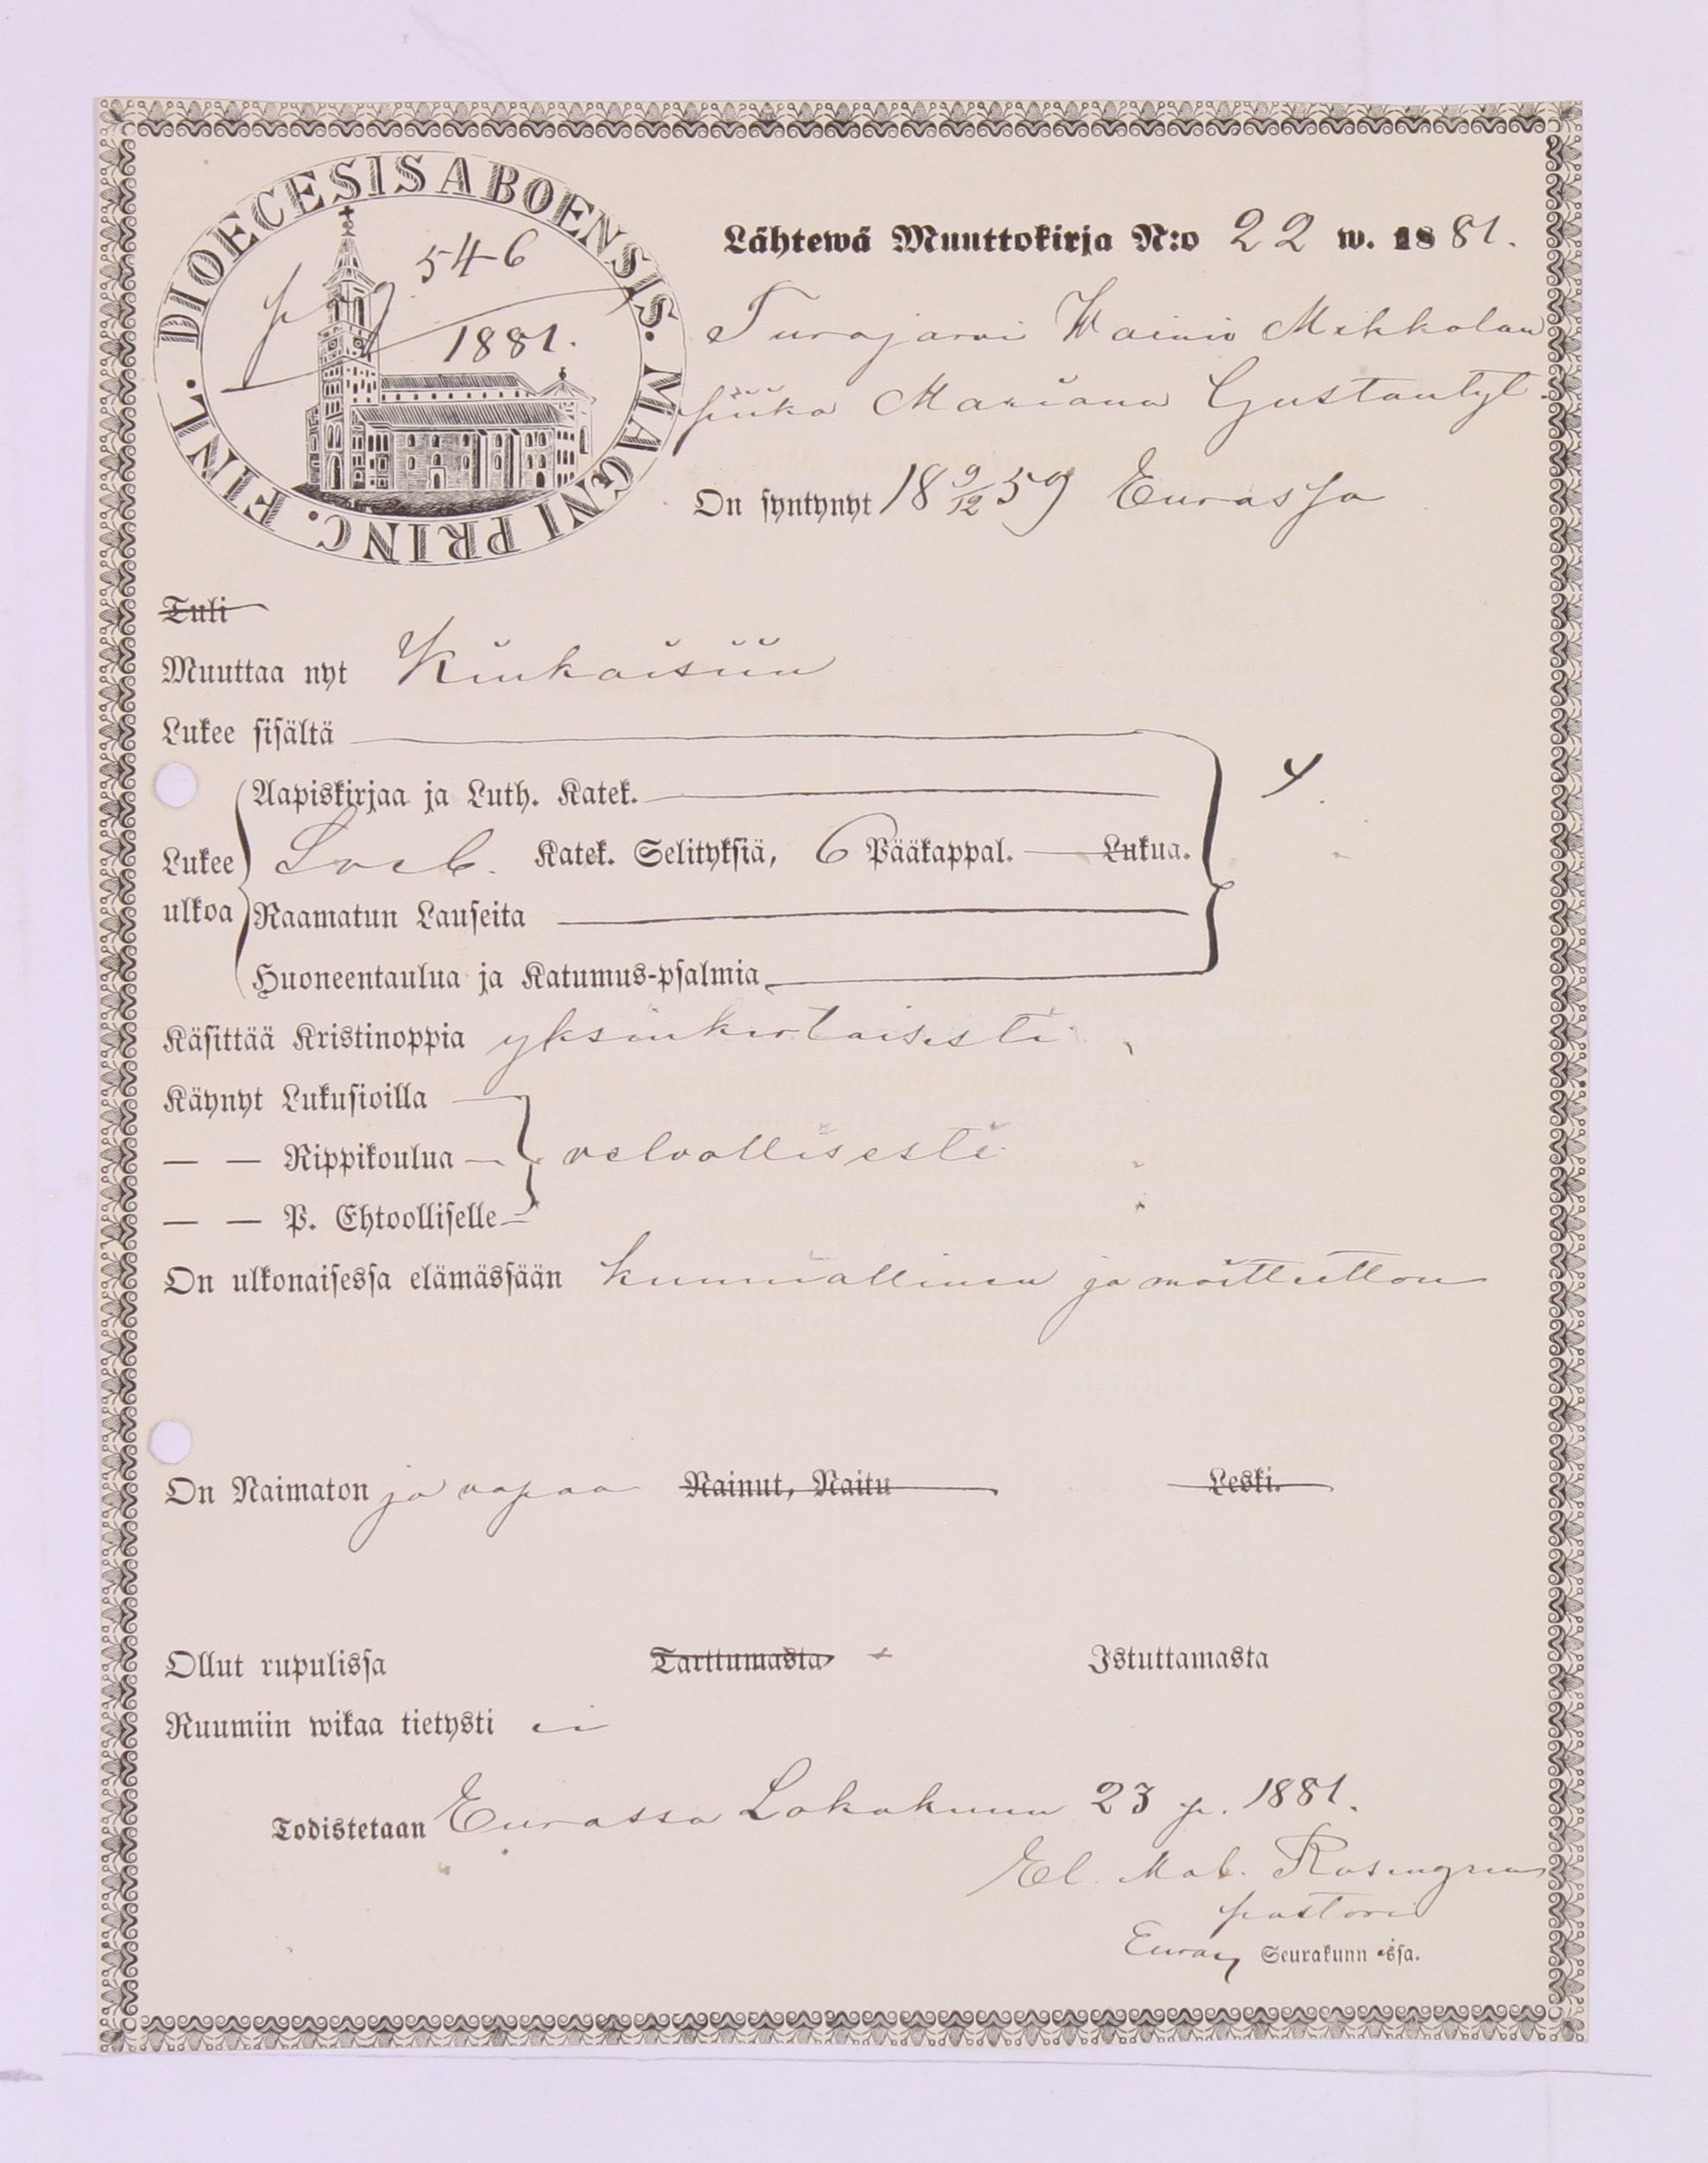 DIOECESIS ABOENSIS. MAGNI PRINC. FINL.
546
1881.
Lähtewä Muuttokirja N:o 22 w. 1881.
Turajärvi Wainio Mikkolan
piika Mariana Gustantyt.
On syntynyt 18 9/12 59 Eurassa
Tuli
Muuttaa nyt Kiukaisiin
Lukee sisältä
Aapiskirjaa ja Luth. Katek.
Lukee Katek. Selityksiä, 6 Pääkappal. Lukua.
ulkoa Raamatun Lauseita
Huoneentaulua ja Katumus-psalmia
Käsittää Kristinoppia yksinkertaisesti
Käynyt Lukusioilla
— — Rippikoulua velvollisesti
— — P. Ehtoolliselle
On ulkonaisessa elämässään kunniallinen ja moitteeton
On Naimaton ja vapaa Nainut, Naitu Leski.
Ollut rupulissa Tarttumasta Istuttamasta
Ruumiin wikaa tietysti ei
Todistetaan Eurassa Lokakuun 23 p. 1881.
El. Rosengren
pastori
Euran Seurakunn assa.